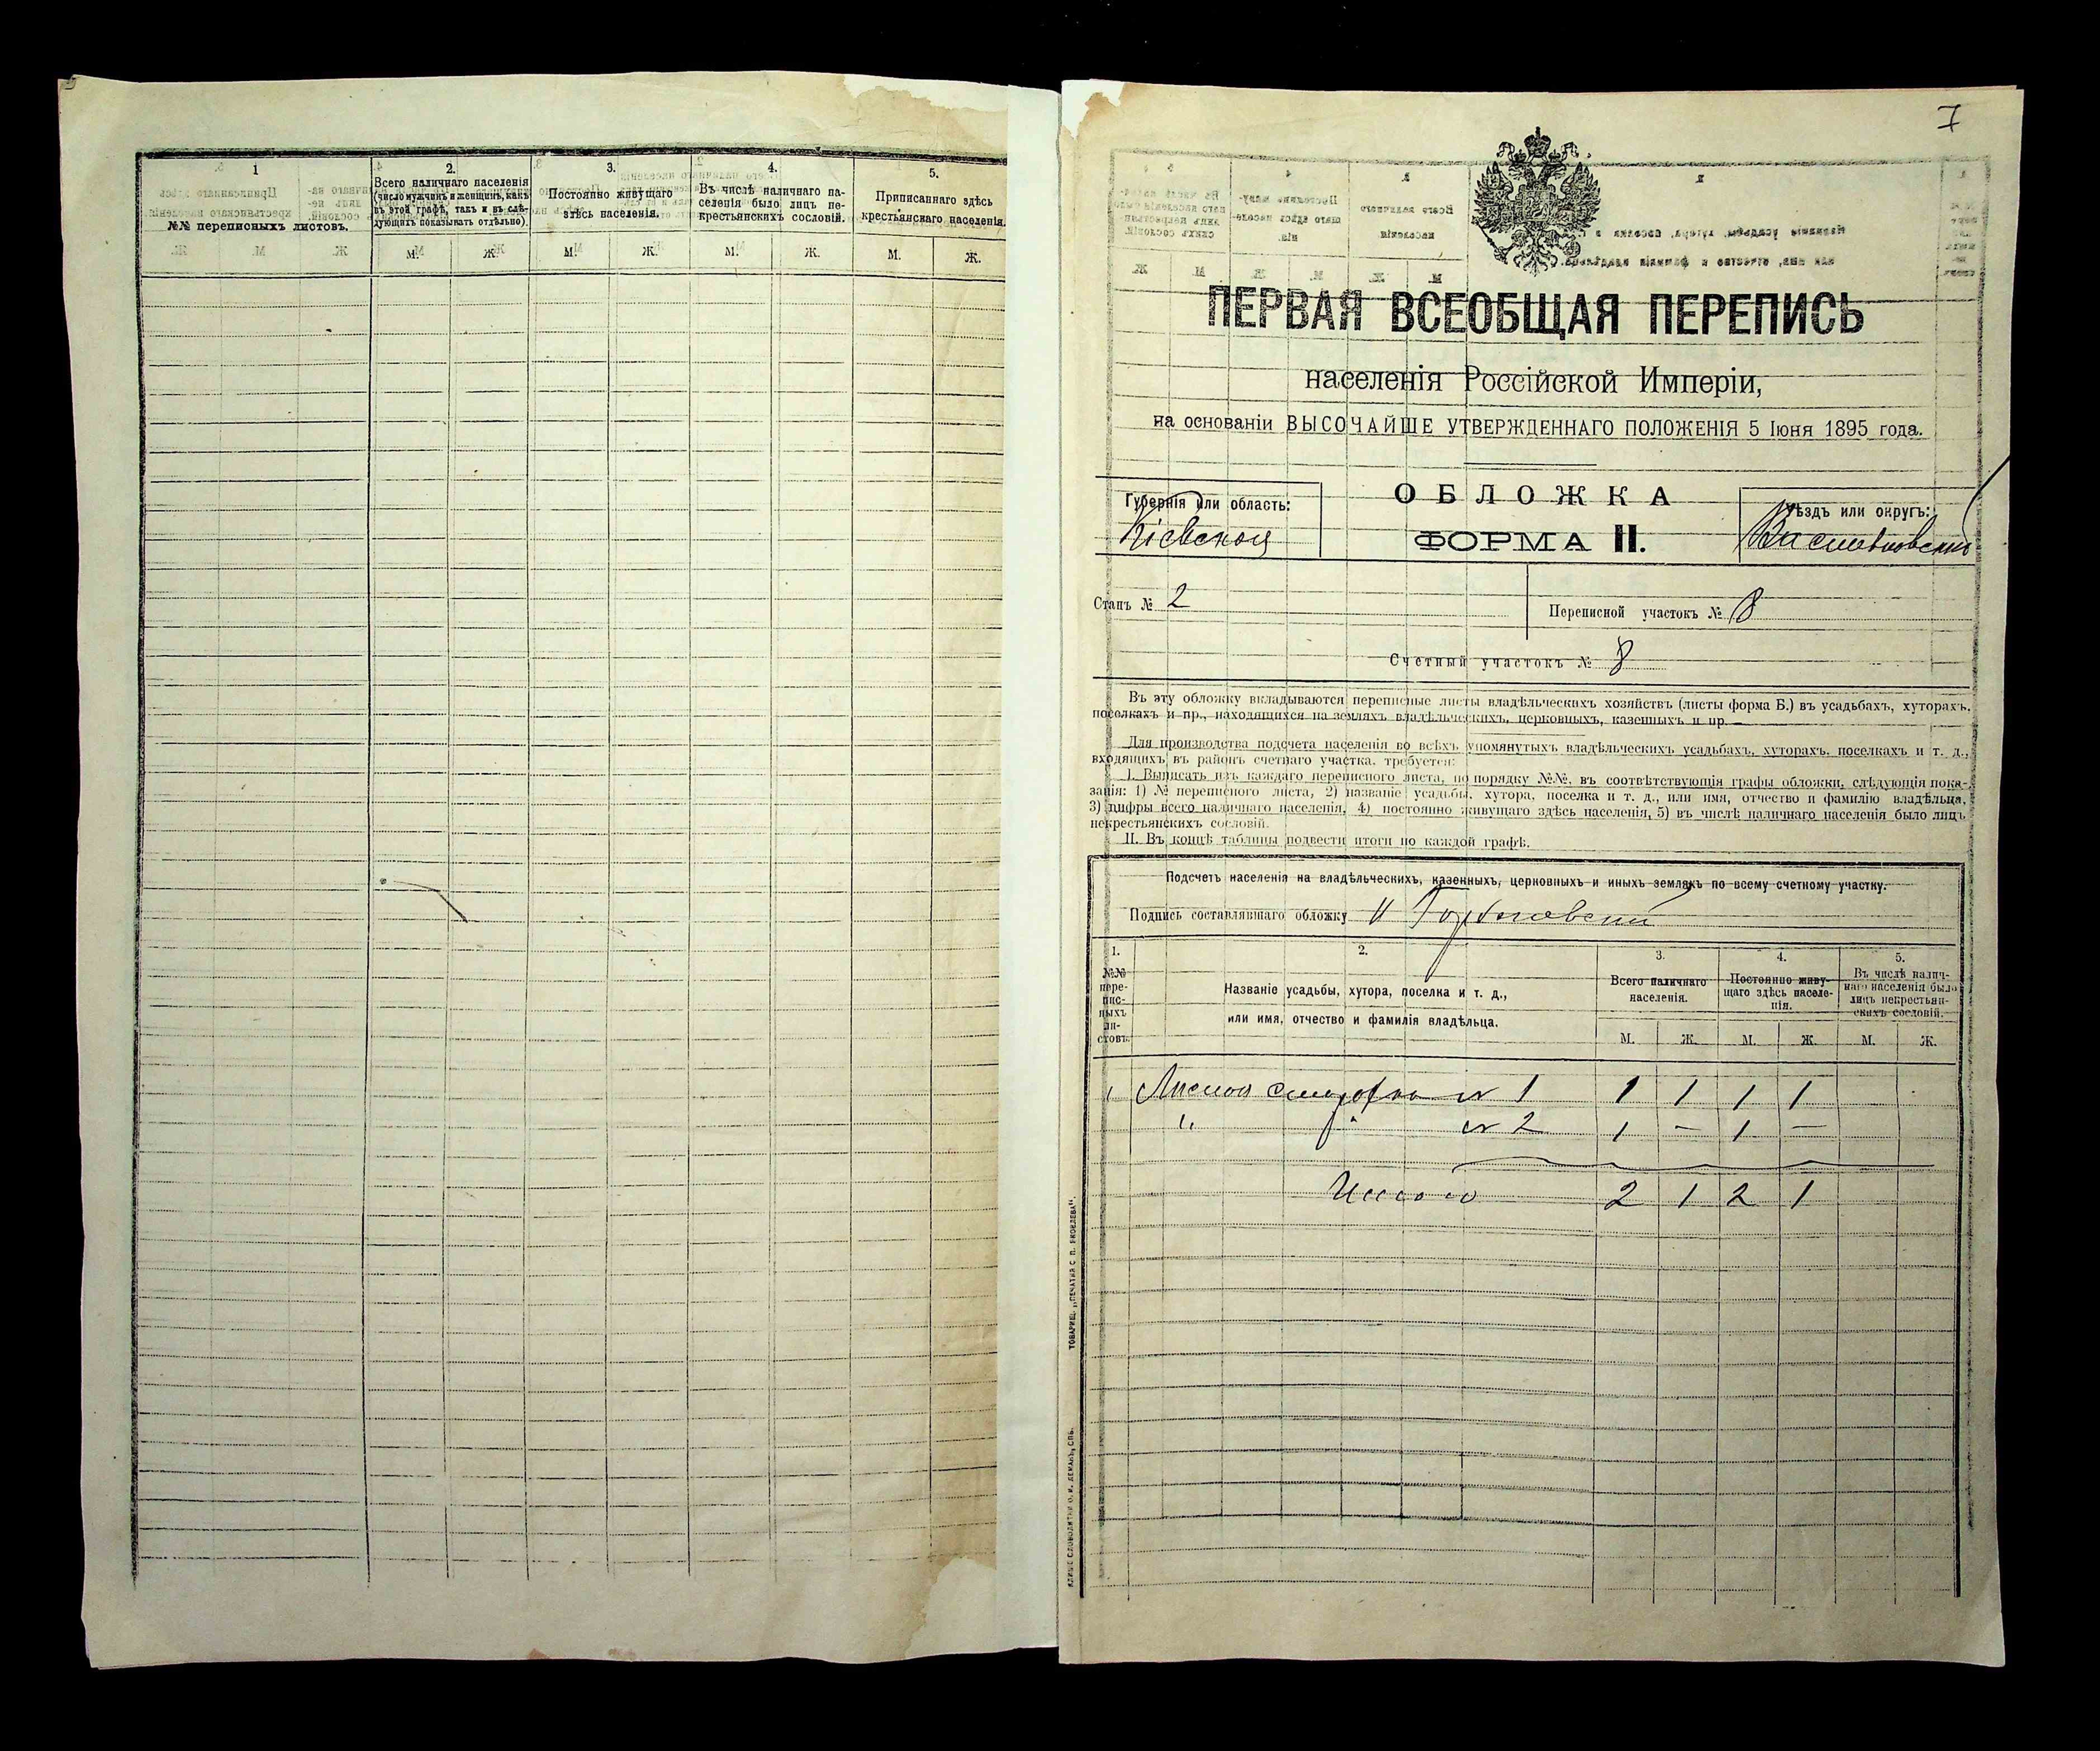 1
№№ переписныхъ листовъ.
2.
Всего наличнаго населенія
(число мужчинъ и женщинъ, какъ
въ этой графѣ, такъ и въ слѣ-
дующихъ показывать отдѣльно).
М. Ж.
3.
Постоянно живущаго
здѣсь населенія.
М. Ж.
4.
Въ числѣ наличнаго на-
селенія было лицъ не-
крестьянскихъ сословій.
М. Ж.
5.
Приписаннаго здѣсь
крестьянскаго населенія.
М. Ж.
7
ПЕРВАЯ ВСЕОБЩАЯ ПЕРЕПИСЬ
населенія Россійской Имперіи,
на основаніи ВЫСОЧАЙШЕ УТВЕРЖДЕННАГО ПОЛОЖЕНІЯ 5 Іюня 1895 года.
Губернія или область:
Кіевская
ОБЛОЖКА
ФОРМА II.
Уѣздъ или округъ:
Станъ № 2
Переписной участокъ № 8
Счетный участокъ № 8
Въ эту обложку вкладываются переписные листы владѣльческихъ хозяйствъ (листы форма Б.) въ усадьбахъ, хуторахъ,
поселкахъ и пр., находящихся на земляхъ владѣльческихъ, церковныхъ, казенныхъ и пр.
Для производства подсчета населенія во всѣхъ упомянутыхъ владѣльческихъ усадьбахъ, хуторахъ, поселкахъ и т. д.,
входящихъ въ районъ счетнаго участка, требуется:
I. Выписать изъ каждаго переписного листа, по порядку №№, въ соотвѣтствующія графы обложки, слѣдующія пока-
занія: 1) № переписного листа, 2) названіе усадьбы, хутора, поселка и т. д., или имя, отчество и фамилію владѣльца,
3) цифры всего наличнаго населенія, 4) постоянно живущаго здѣсь населенія, 5) въ числѣ наличнаго населенія было лицъ
некрестьянскихъ сословій.
II. Въ концѣ таблицы подвести итоги по каждой графѣ.
Подсчетъ населенія на владѣльческихъ, казенныхъ, церковныхъ и иныхъ земляхъ по всему счетному участку.
Подпись составлявшаго обложку
1.
№№
пере-
пис-
ныхъ
ли-
стовъ.
2.
Названіе усадьбы, хутора, поселка и т. д.,
или имя, отчество и фамилія владѣльца.
3.
Всего наличнаго
населенія.
М. Ж.
4.
Постоянно живу-
щаго здѣсь населе-
нія.
М. Ж.
5.
Въ числѣ налич-
наго населенія было
лицъ некрестьян-
скихъ сословій.
М. Ж.
№ 1 1 1 1 1
" " № 2 1 — 1 —
Итого 2 1 2 1
ТОВАРИЩ. „ПЕЧАТНЯ С. П. ЯКОВЛЕВА".